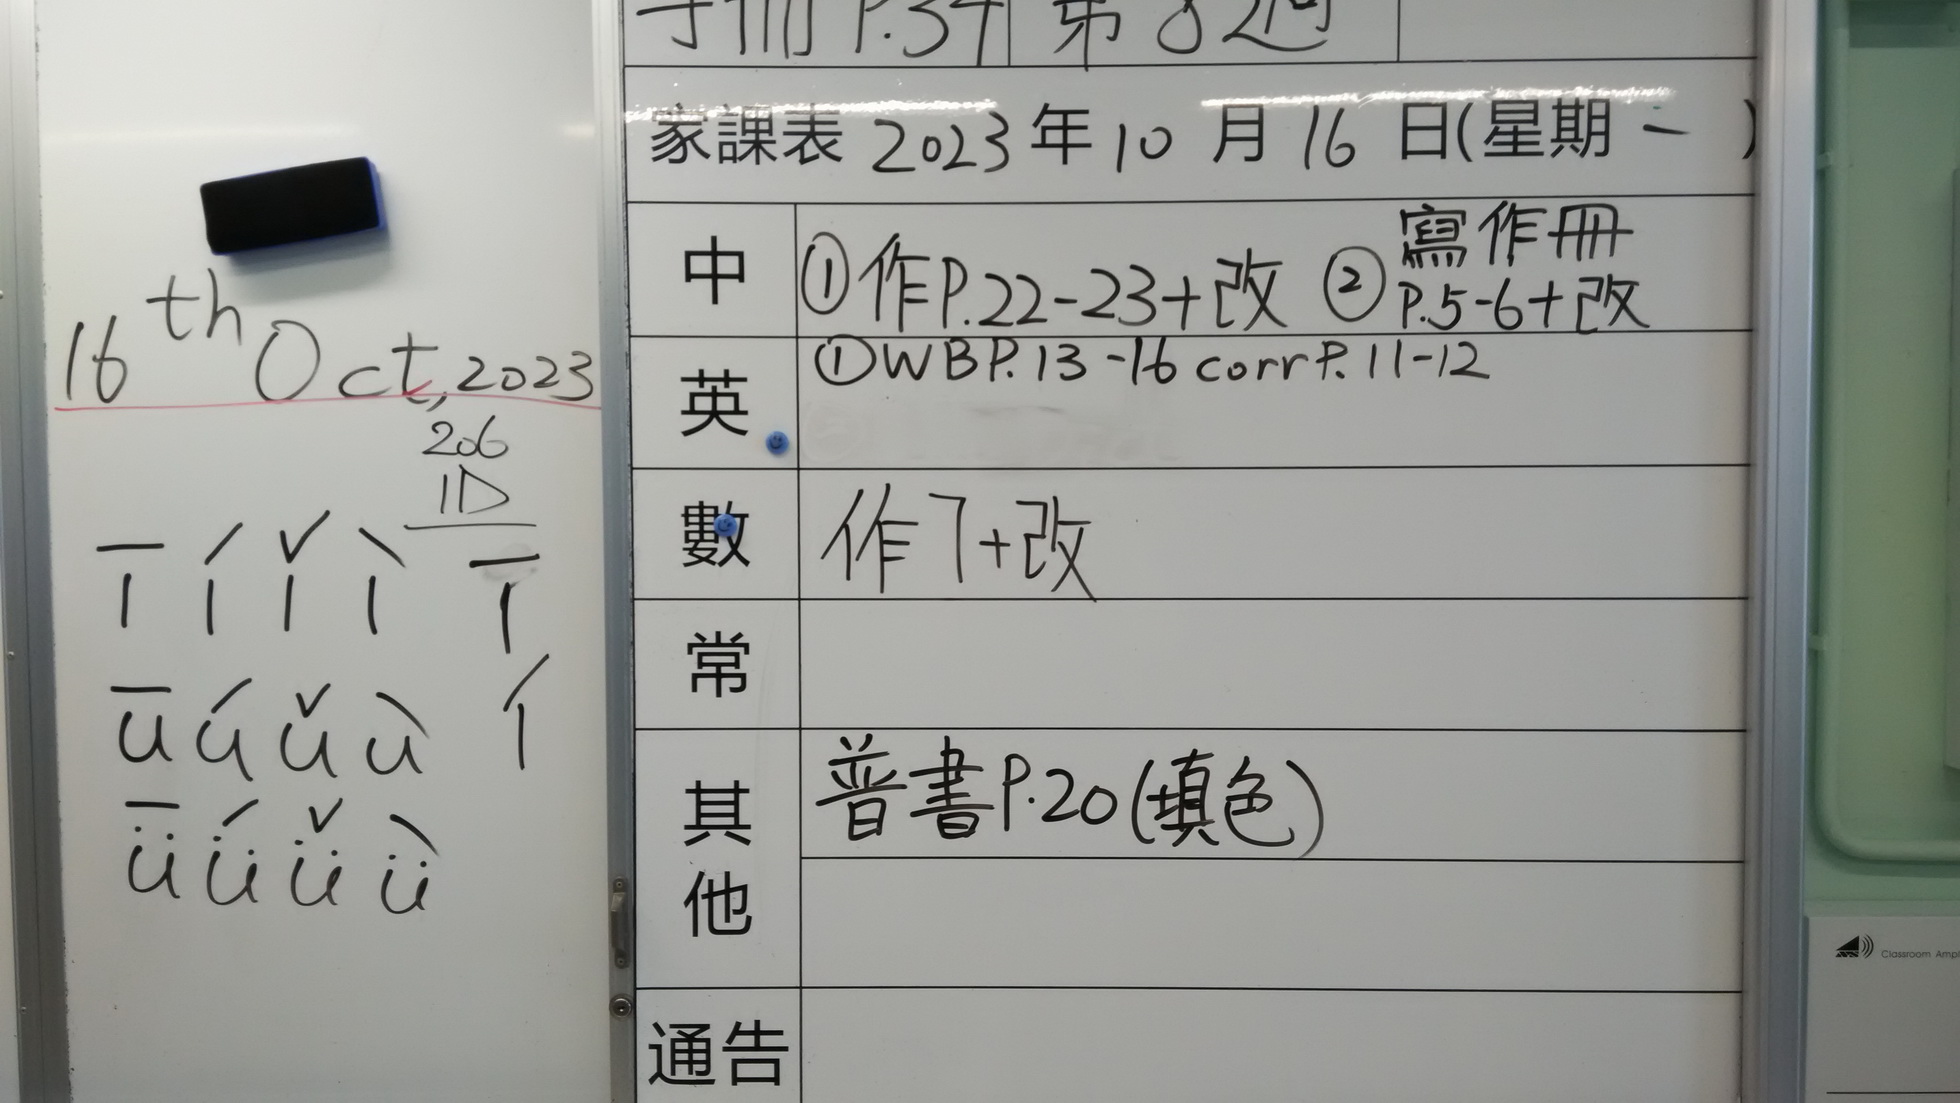 16th Oct, 2023
206
1D
ī í ǐ ì ī
ū ú ǔ ù í
ǖ ǘ ǚ ǜ
手冊 P.34 第 8 週
家課表 2023 年 10 月 16 日(星期 一 )
中 ①作P.22-23+改 ②寫作冊
P.5-6+改
英 ①WBP.13-16 corrP.11-12
數 作7+改
常
其他 普書P.20(填色)
通告
Classroom Ampl